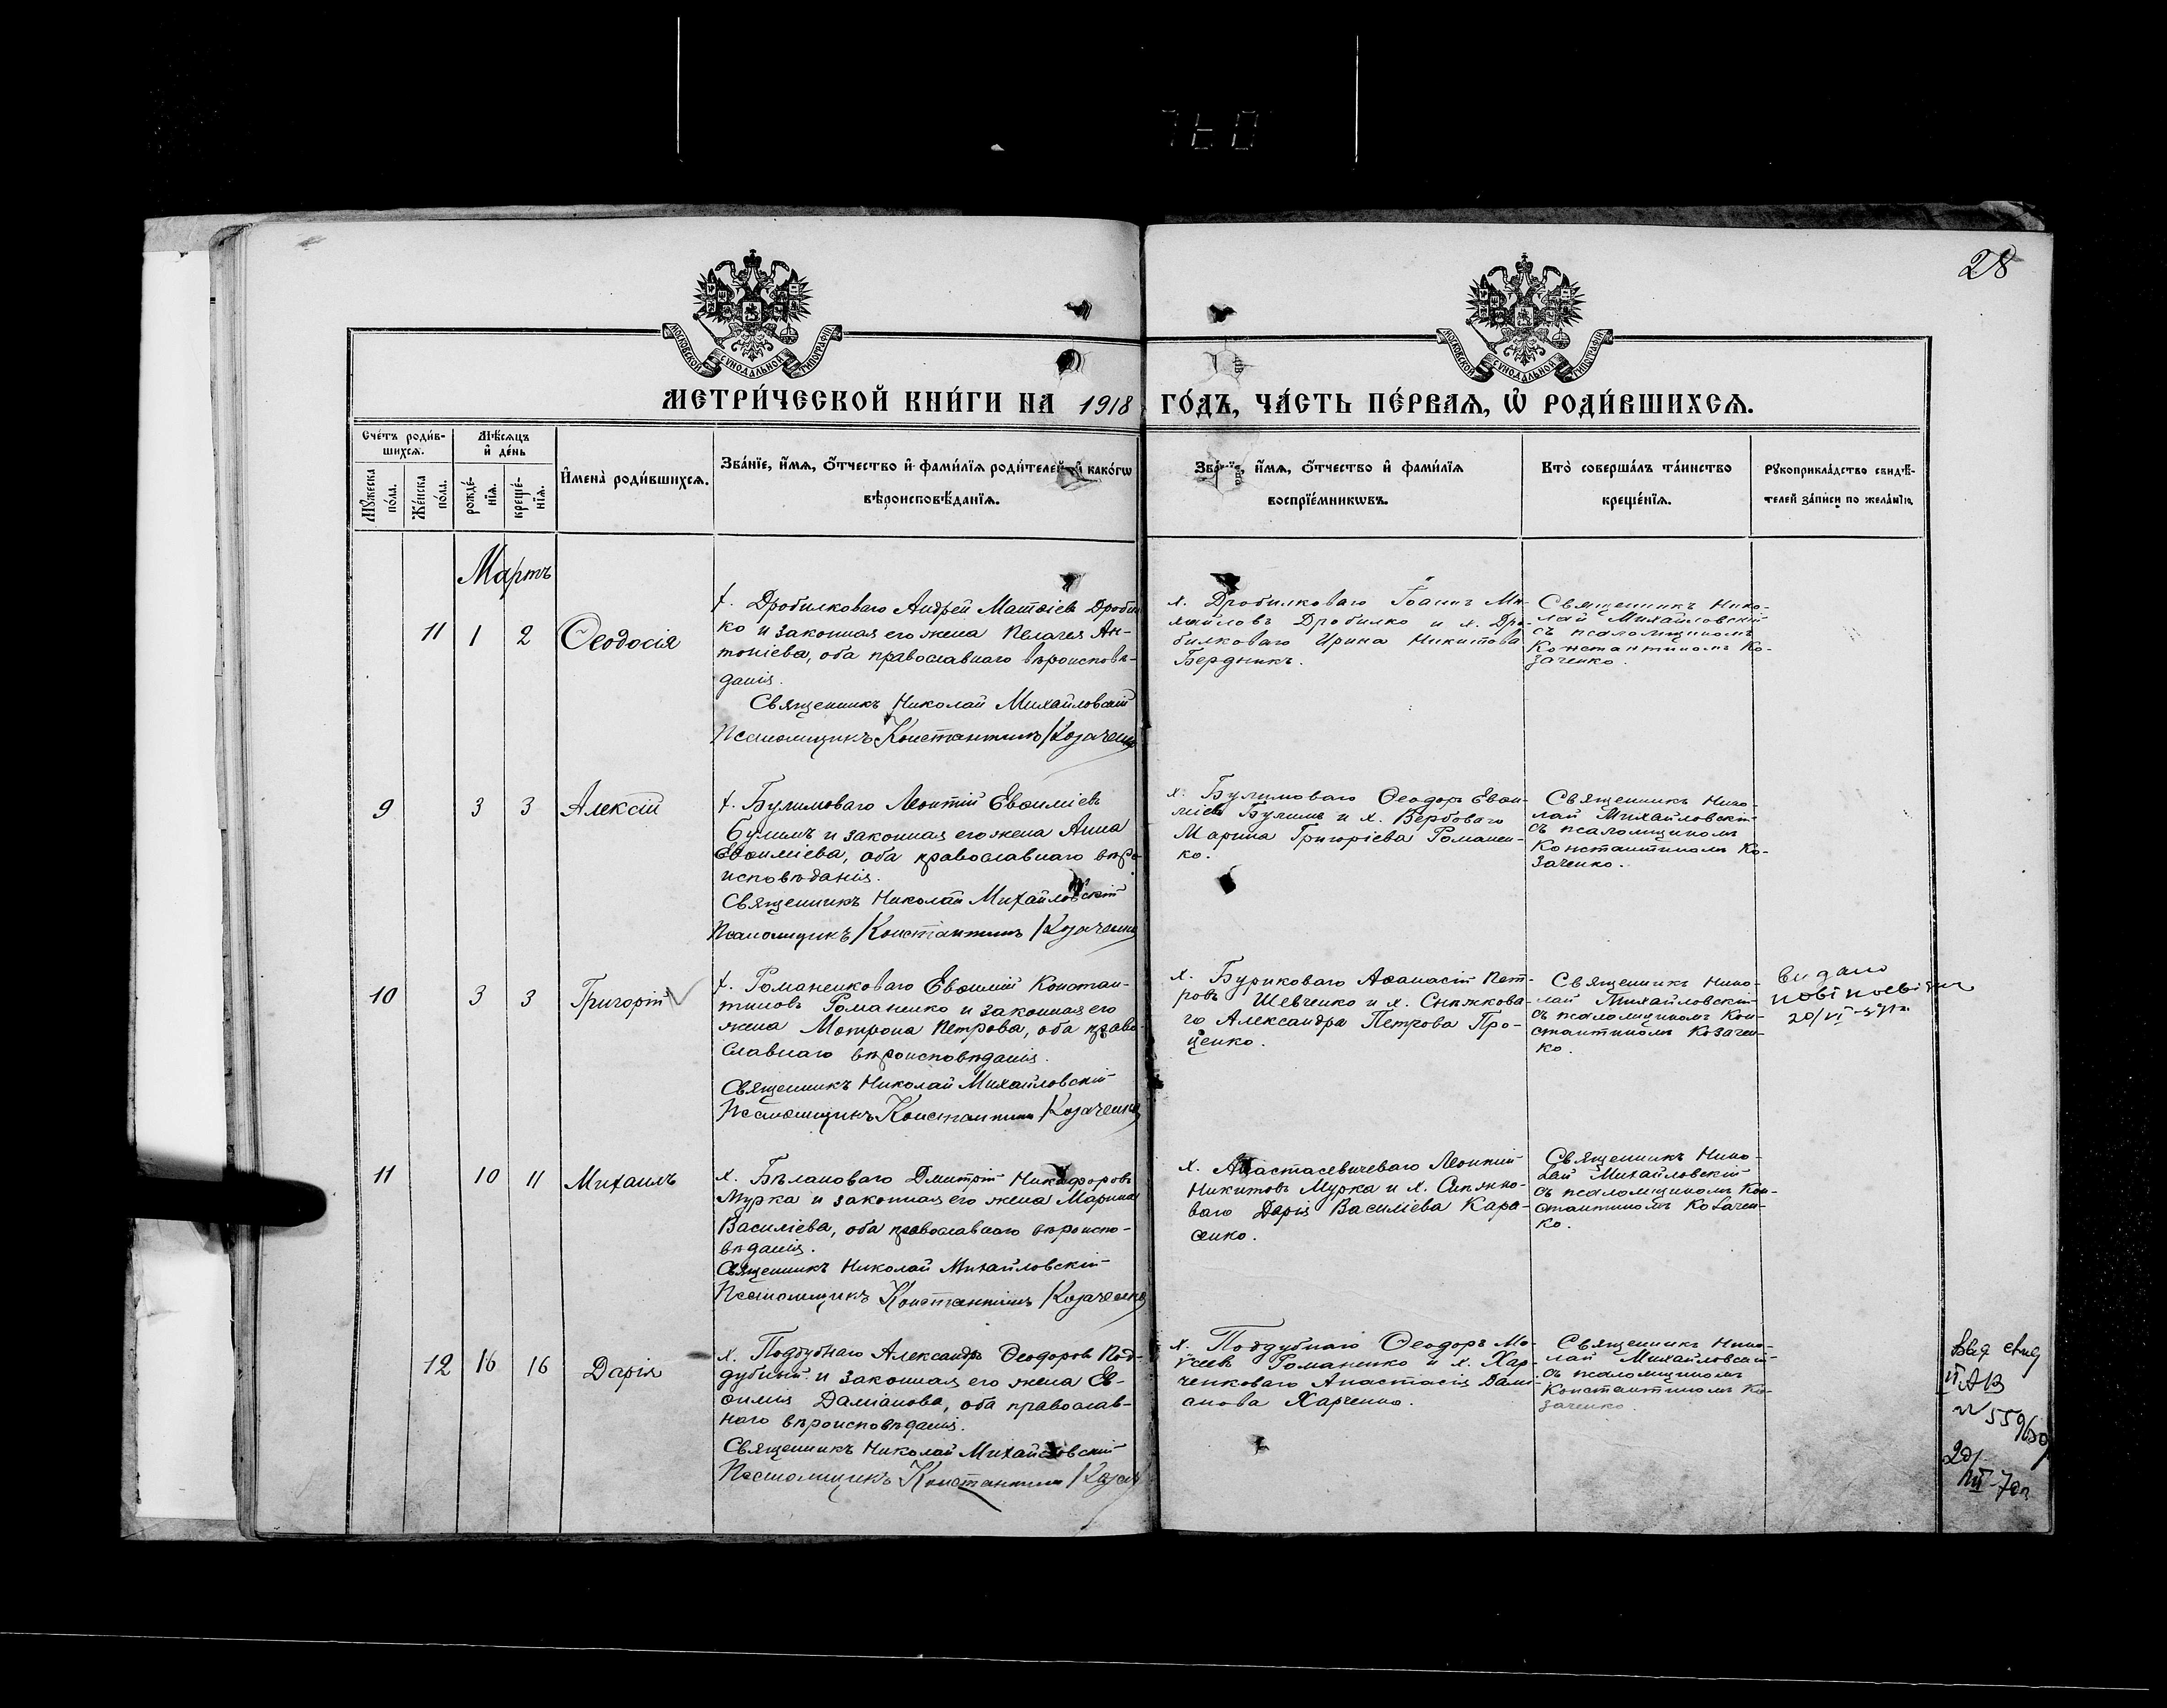 28
МОСКОВСКОЙ СѴНОДАЛЬНОЙ ТИПОГРАФІИ
МОСКОВСКОЙ СѴНОДАЛЬНОЙ ТИПОГРАФІИ
МЕТРИ́ЧЕСКОЙ КНИ́ГИ НА 1918 ГО́ДЪ, ЧА́СТЬ ПЕ́РВАѦ, Ѡ҆ РОДИ́ВШИХСѦ.
Сче́тъ роди́в-
шихсѧ.
Мѣ́сѧцъ
и҆ де́нь
Мꙋ́жеска
по́ла.
Же́нска
по́ла.
рожде́-
нїѧ.
креще́-
нїѧ.
И҆мена̀ роди́вшихсѧ.
Зва́нїе, и҆́мѧ, ѻ҆́тчество и҆ фами́лїѧ роди́телей, и҆ како́гѡ
вѣроисповѣ́данїѧ.
Зва́нїе, и҆́мѧ, ѻ҆́тчество и҆ фами́лїѧ
воспрїе́мникѡвъ.
Кто̀ соверша́лъ та́инство
креще́нїѧ.
Рꙋкоприкла́дство свидѣ́-
телей за́писи по жела́нїю.
Мартъ
11 1 2 Ѳеодосія
х. Дробилковаго Андрей Матѳіевъ Дробил
ко и законная его жена Пелагея Ан-
тоніева, оба православнаго вѣроисповѣ-
данія.
Священникъ Николай Михайловскій
Псаломщикъ Константинъ Козаченко
х. Дробилковаго Іоаннъ Ми-
хаиловъ Дробилко и х. Дро-
билковаго Ирина Никитова
Бердникъ.
Священникъ Нико-
лай Михайловскій
съ псаломщикомъ
Константиномъ Ко-
заченко.
9 3 3 Алексій
х. Булимоваго Леонтій Евѳиміевъ
Булимъ и законная его жена Анна
Евѳиміева, оба православнаго вѣро-
исповѣданія.
Священникъ Николай Михайловскій
Псаломщикъ Константинъ Козаченко
х. Булимоваго Ѳеодоръ Евѳи-
міевъ Булимъ и х. Вербоваго
Марина Григоріева Романен-
ко.
Священникъ Нико-
лай Михайловскій
съ псаломщикомъ
Константиномъ Ко-
заченко.
10 3 3 Григорій
х. Романенковаго Евѳимій Констан-
тиновъ Романенко и законная его
жена Матрона Петрова, оба право-
славнаго вѣроисповѣданія.
Священникъ Николай Михайловскій
Псаломщикъ Константинъ Козаченко
х. Буриковаго Аѳанасій Пет-
ровъ Шевченко и х. Снѣжкова-
го Александра Петрова Про-
ценко.
Священникъ Нико-
лай Михайловскій
съ псаломщикомъ Кон-
стантиномъ Козачен-
ко.
Видано
20/VI
11 10 11 Михаилъ
х. Бѣлановаго Дмитрій Никифоровъ
Мурка и законная его жена Марина
Василіева, оба православнаго вѣроиспо-
вѣданія.
Священникъ Николай Михайловскій
Псаломщикъ Константинъ Козаченко
х. Анастасевичеваго Леонтій
Никитовъ Мурка и х. Сипянко-
ваго Дарія Василіева Кара-
сенко.
Священникъ Нико-
лай Михайловскій
съ псаломщикомъ Кон-
стантиномъ Козачен-
ко.
12 16 16 Дарія
х. Поддубнаго Александръ Ѳеодоровъ Под-
дубный и законная его жена Ев-
ѳимія Даміанова, оба православ-
наго вѣроисповѣданія.
Священникъ Николай Михайловскій
Псаломщикъ Константинъ Козач
х. Поддубнаго Ѳеодоръ Мо-
ѵсеевъ Романенко и х. Хар-
ченковаго Анастасія Дамі-
анова Харченко.
Священникъ Нико-
лай Михайловскій
съ псаломщикомъ
Константиномъ Ко-
заченко.
II АВ